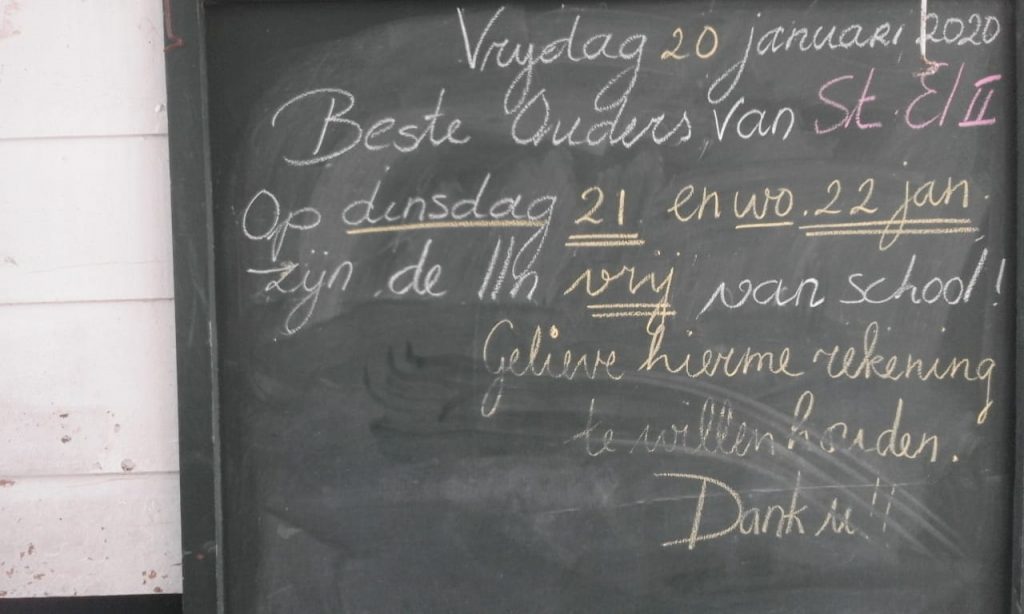 Vrijdag 20 januari 2020
Beste Ouders van St. El II
Op dinsdag 21 en wo. 22 jan.
zijn de lln vrij van school!
Gelieve hierme rekening
te willen houden.
Dank u!!